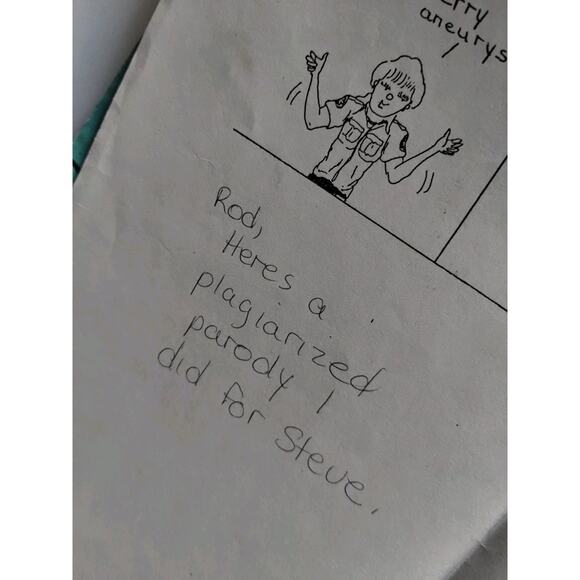 aneurys
Rod,
Heres a
plagiarized
parody I
did for Steve.